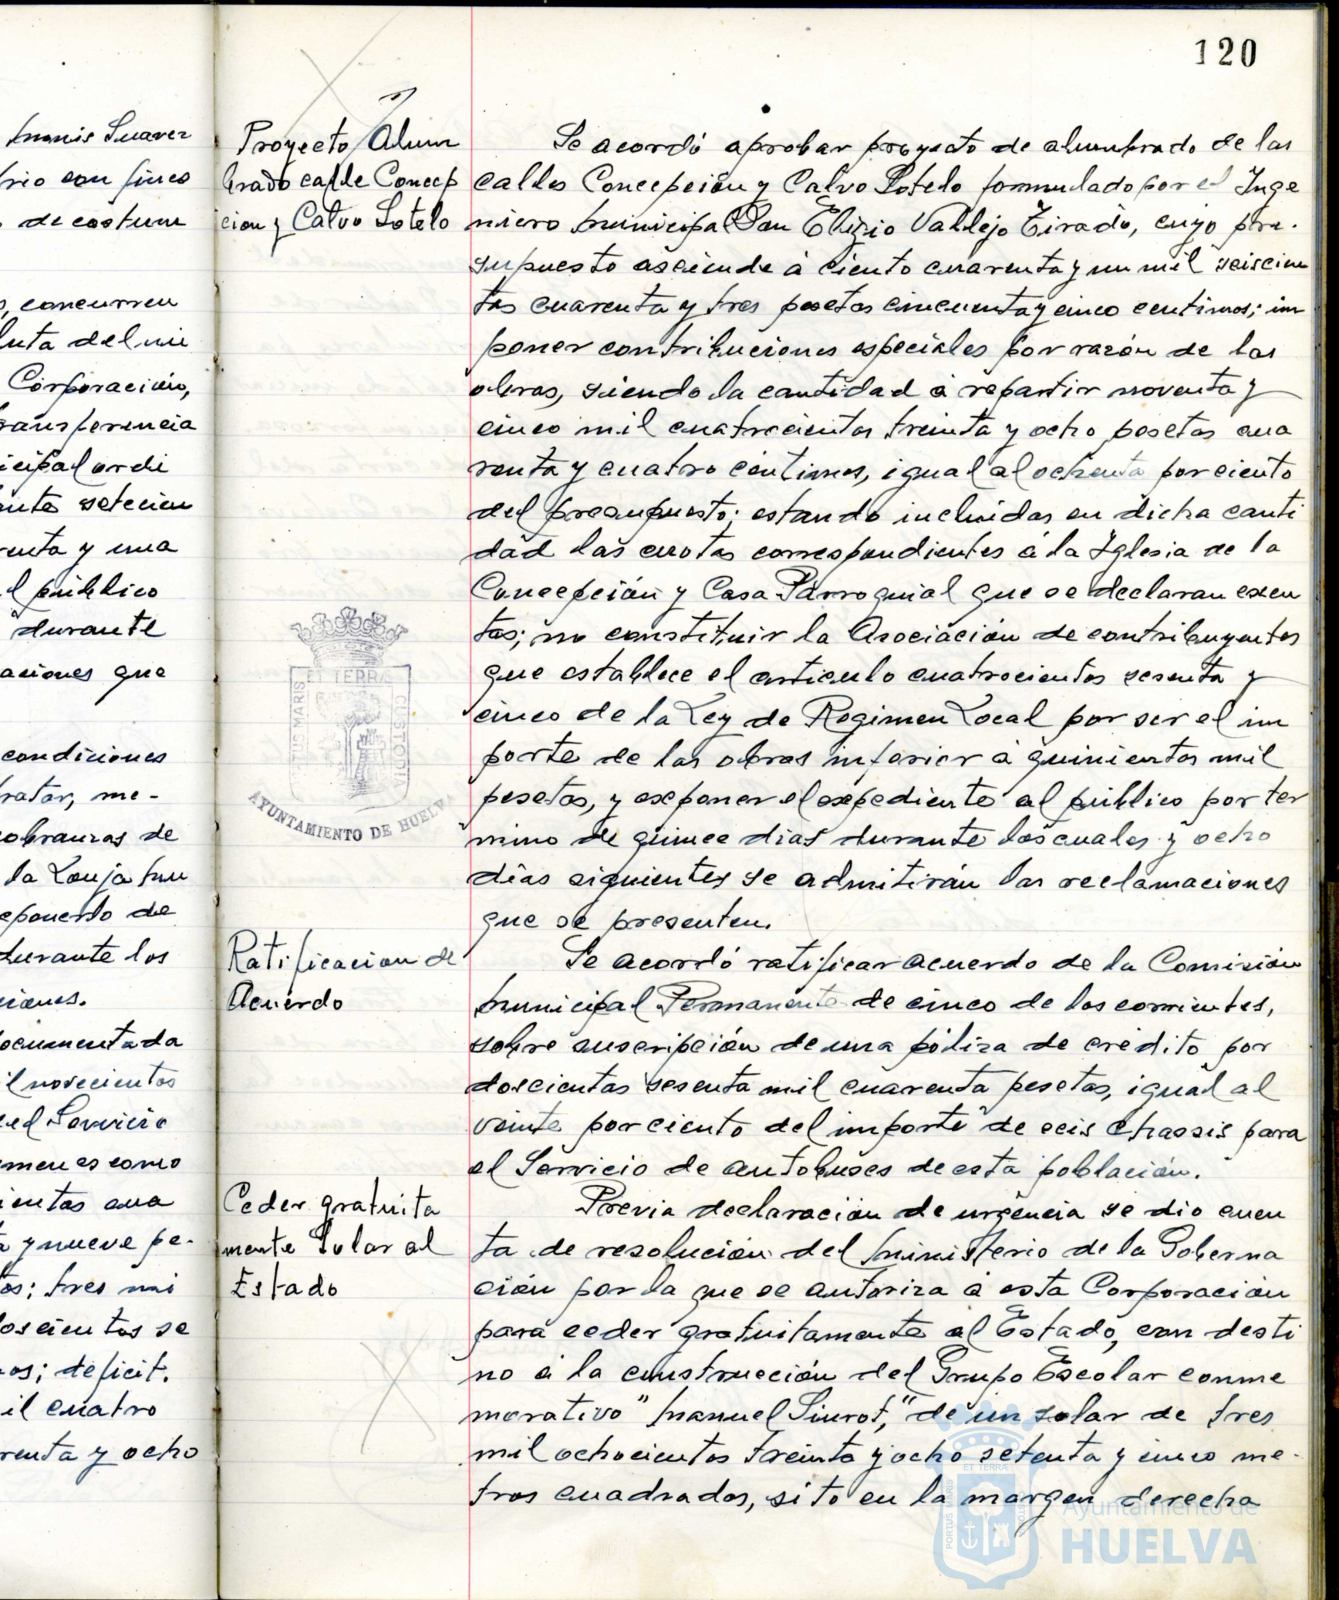 120
munis Suarez
rio con fines
de costum
, concurren
luta del mi
Corporación,
ransferencia
icipal ordi
ente setecien
renta y una
l público
durante
aciones que
condiciones
ratar, me-
obranzas de
la Lonja mu
eponerlo de
durante los
ciones.
ocumentada
il novecientos
el Servicio
menes como
ientas cua
a y nueve pe-
tos; tres mi
oscientos se
os; deficit.
il cuatro
renta y ocho
Proyecto Alum
brado calle Concep
cion y Calvo Sotelo
Se acordó aprobar proyecto de alumbrado de las
calles Concepción y Calvo Sotelo formulado por el Inge
niero municipal Don Eligio Vallejo Tirado, cuyo pre-
supuesto asciende á ciento cuarenta y un mil seiscien
tas cuarenta y tres pesetas cincuenta y cinco centimos; im
poner contribuciones especiales por razón de las
obras, siendo la cantidad á repartir noventa y
cinco mil cuatrocientas treinta y ocho pesetas cua
renta y cuatro céntimos, igual al ochenta por ciento
del presupuesto; estando incluidas en dicha canti
dad las cuotas correspondientes á la Iglesia de la
Concepción y Casa Parroquial que se declaran exen
tas; no constituir la Asociación de contribuyentes
que establece el articulo cuatrocientos sesenta y
cinco de la Ley de Regimen Local por ser el im
porte de las obras inferior á quinientas mil
pesetas, y exponer el expediente al público por ter
mino de quince dias durante los cuales y ocho
dias siguientes se admitirán las reclamaciones
que se presenten.
ET TERRA
CUSTODIA
AYUNTAMIENTO DE HUELVA
Ratificacion de
Acuerdo
Se acordó ratificar acuerdo de la Comisión
municipal Permanente de cinco de los corrientes,
sobre suscripción de una póliza de crédito por
doscientas sesenta mil cuarenta pesetas, igual al
veinte por ciento del importe de seis chassis para
el Servicio de autobuses de esta población.
Ceder gratuita
mente Solar al
Estado
Previa declaración de urgencia se dio cuen
ta de resolución del Ministerio de la Goberna
ción por la que se autoriza á esta Corporación
para ceder gratuitamente al Estado, con desti
no á la construcción del Grupo Escolar conme
morativo "Manuel Siurot," de un solar de tres
mil ochocientos treinta y ocho setenta y cinco me-
tros cuadrados, sito en la margen derecha
PORTUS MARIS
ET TERRA
Ayuntamiento de
HUELVA